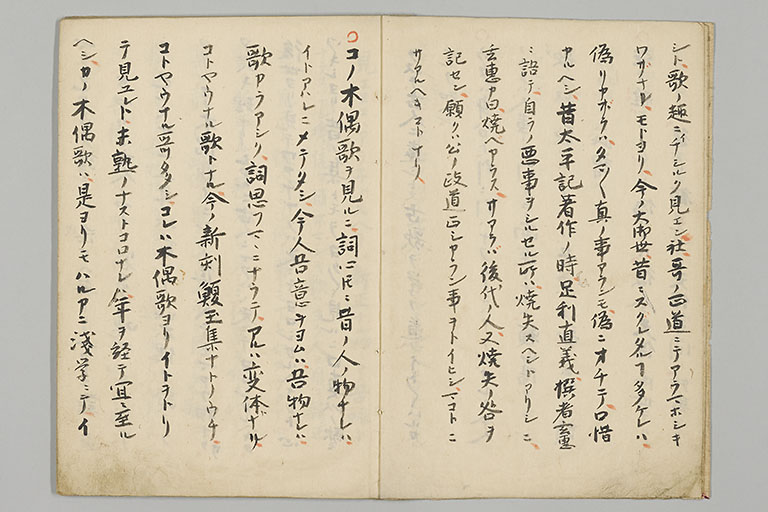 シト、歌ノ趣ニテシルク見エン社、哥ノ正道ニテアラマホシキ
ワザナレ、モトヨリ今ノ大御世昔ニスクレタルコト多ケレハ
偽リカザラハ、タマ〳〵真ノ事アランモ偽ニオチテ口惜
カルヘシ、昔太平記著作ノ時、足利直義、撰者玄
ニ語テ自ラノ悪事ヲシルセル所ハ焼失スヘシトアリシニ、
玄恵申ハ焼ヘカラス、サアラハ後代ノ人又焼失ノ咎ヲ
記セン、願クハ公ノ政道正シカラン事ヲトイヒシコトニ
サアルヘキコトナリ
○コノ木偶歌ヲ見ルニ詞心氏ニ昔ノ人ノ物ナレハ
イトアハレニメテタシ、今人吾意ヲヨムハ吾物ナレハ
歌アラアシク、詞思フマヽニナラテアルハ変体ナル
コトヤウナル歌トナル、今ノ新刻鰒玉集ナトノウチ、
コトヤウナル哥多シ、コレハ木偶歌ヨリイトヲトリ
テ見ユレト、未熟ノナストコロナレハ年ヲ経テ宜ニ至ル
ヘシ、カノ木偶歌ハ是ヨリモハルカニ浅学ニテイ